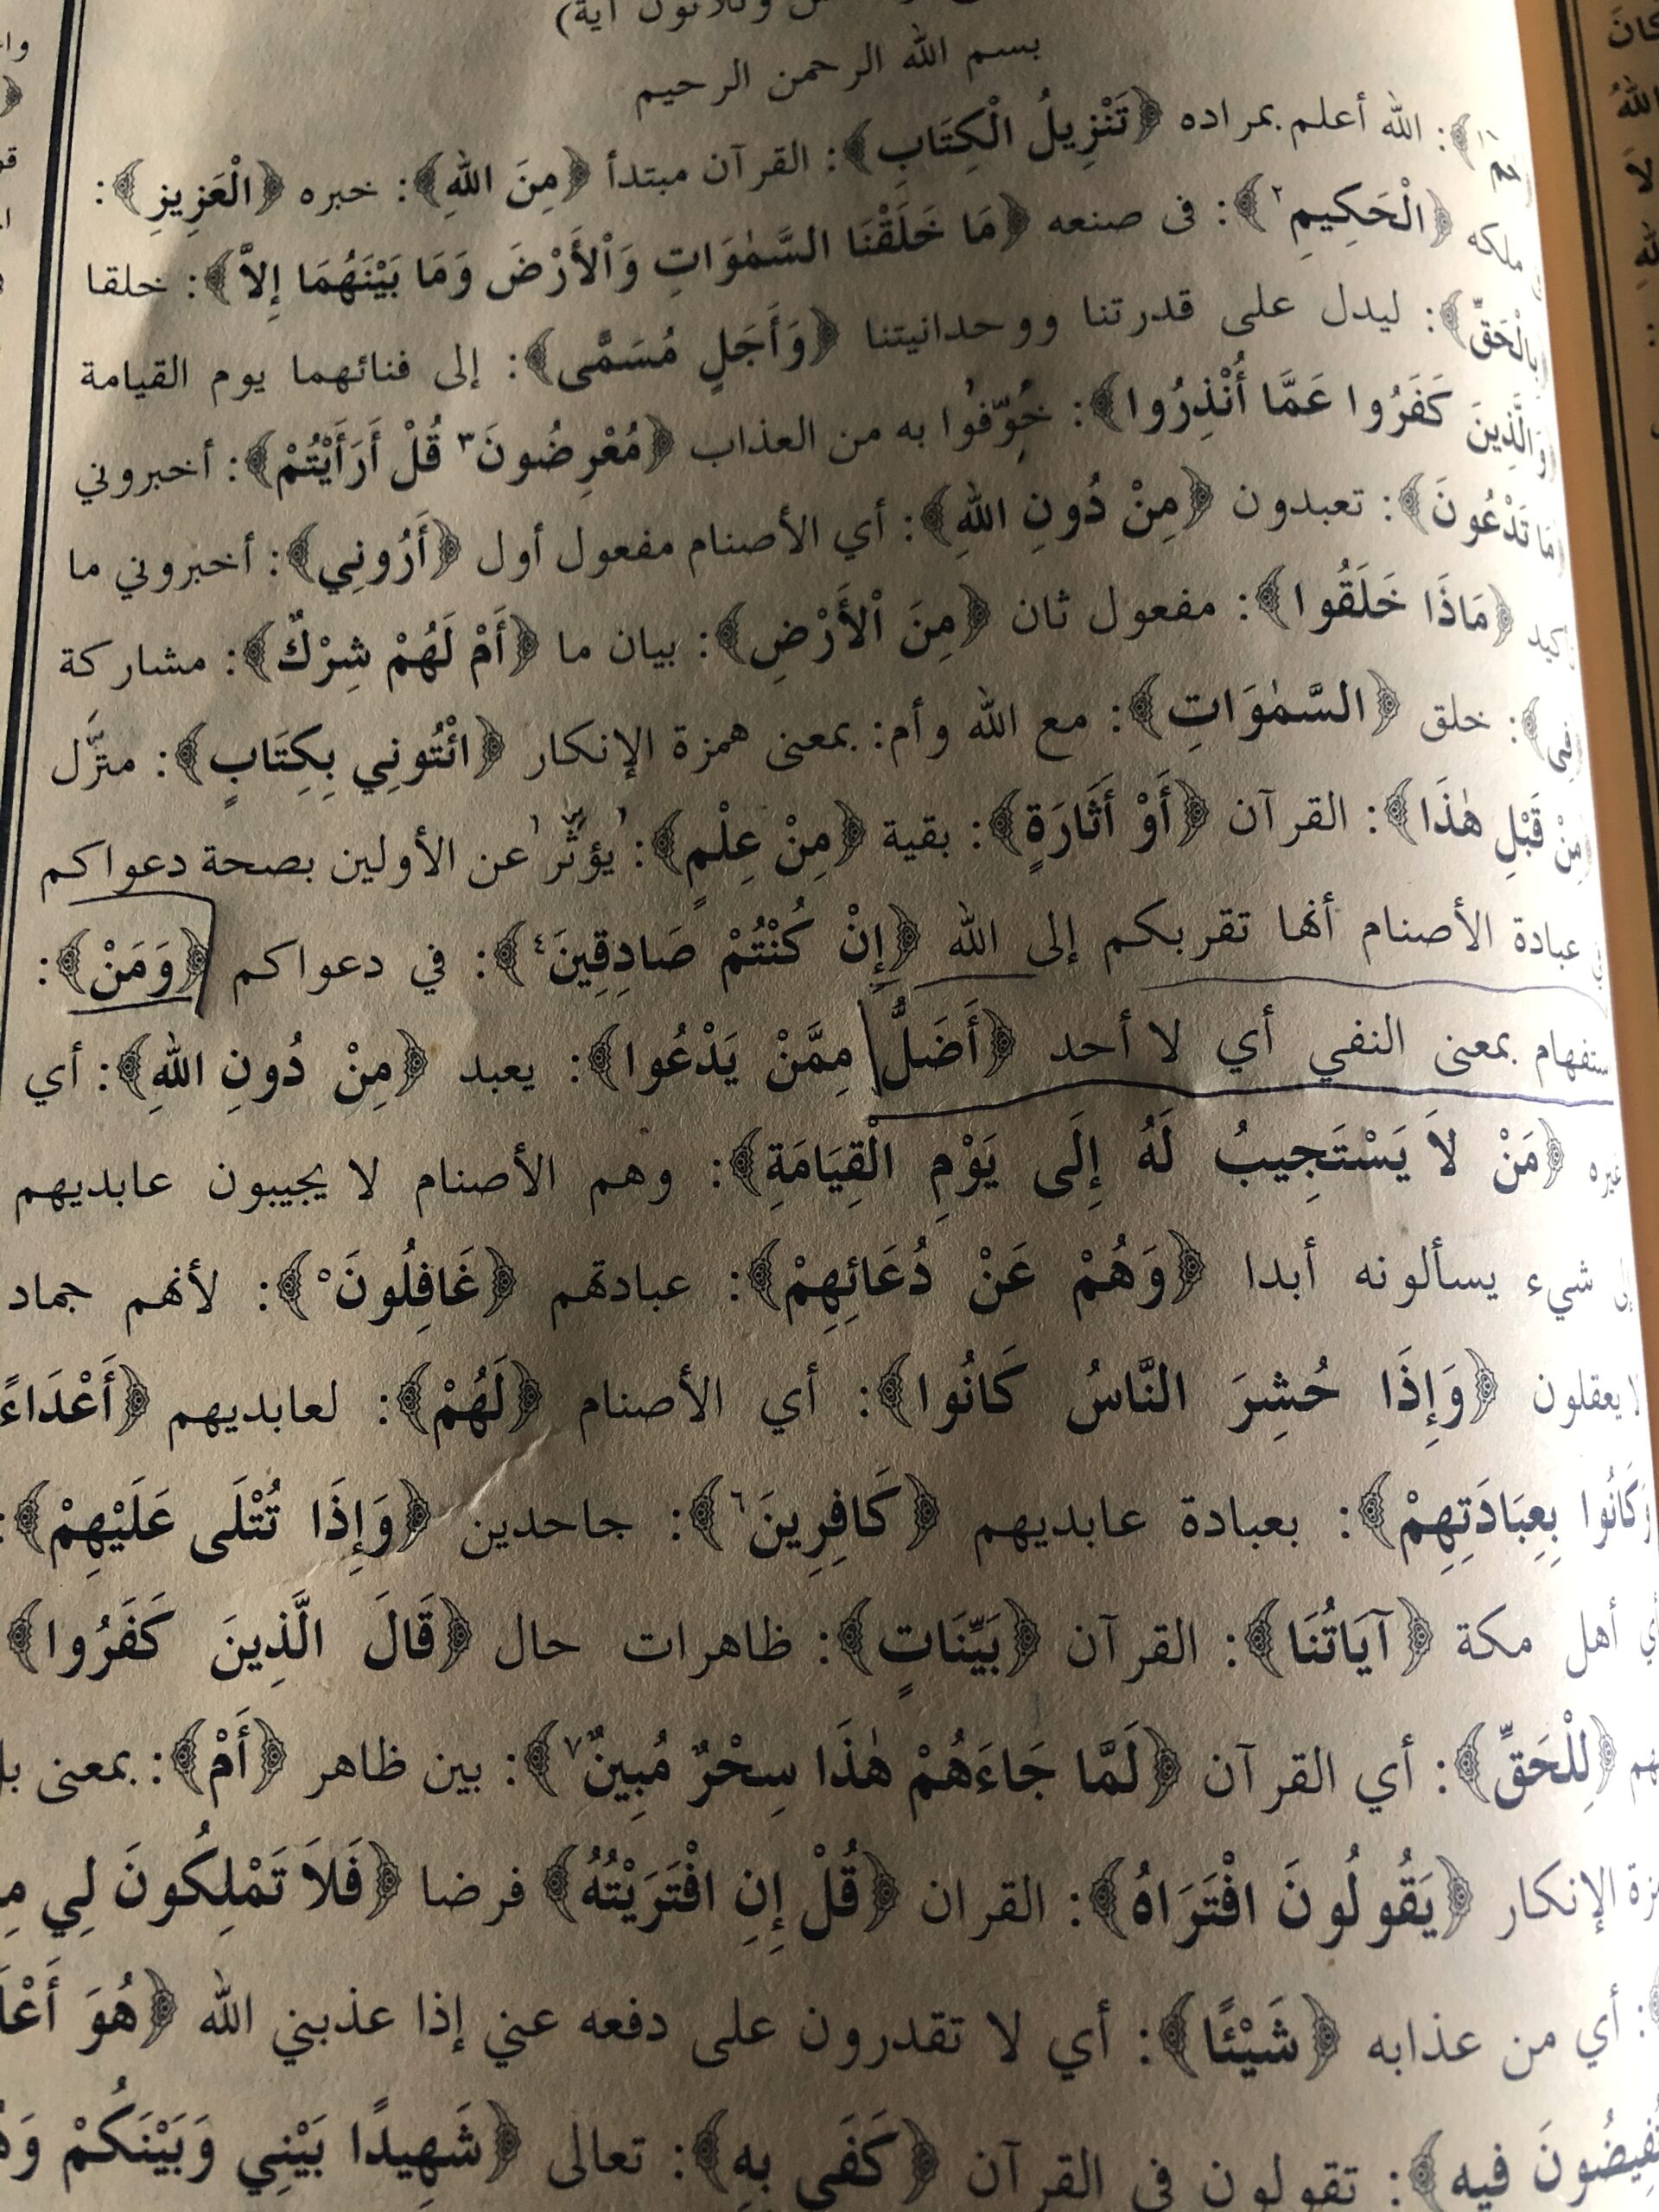 وثلاثون آية)
بسم الله الرحمن الرحيم
﴿حم ١﴾: الله أعلم بمراده ﴿تَنْزِيلُ الْكِتَابِ﴾: القرآن مبتدأ ﴿مِنَ اللهِ﴾: خبره ﴿الْعَزِيزِ﴾:
ملكه ﴿الْحَكِيمِ ٢﴾: فى صنعه ﴿مَا خَلَقْنَا السَّمٰوَاتِ وَاْلأَرْضَ وَمَا بَيْنَهُمَا إِلاَّ﴾: خلقا
بِالْحَقِّ﴾: ليدل على قدرتنا ووحدانيتنا ﴿وَأَجَلٍ مُسَمًّى﴾: إلى فنائهما يوم القيامة
وَالَّذِينَ كَفَرُوا عَمَّا أُنْذِرُوا﴾: خُوِّفُوا به من العذاب ﴿مُعْرِضُونَ ٣ قُلْ أَرَأَيْتُمْ﴾: أخبروني
مَا تَدْعُونَ﴾: تعبدون ﴿مِنْ دُونِ اللهِ﴾: أي الأصنام مفعول أول ﴿أَرُونِي﴾: أخبروني ما
كيد ﴿مَاذَا خَلَقُوا﴾: مفعول ثان ﴿مِنَ اْلأَرْضِ﴾: بيان ما ﴿أَمْ لَهُمْ شِرْكٌ﴾: مشاركة
فى﴾: خلق ﴿السَّمٰوَاتِ﴾: مع الله وأم: بمعنى همزة الإنكار ﴿ائْتُونِي بِكِتَابٍ﴾: منَزَّل
مِنْ قَبْلِ هٰذَا﴾: القرآن ﴿أَوْ أَثَارَةٍ﴾: بقية ﴿مِنْ عِلْمٍ﴾: يؤثَّر عن الأولين بصحة دعواكم
عبادة الأصنام أنها تقربكم إلى الله ﴿إِنْ كُنْتُمْ صَادِقِينَ ٤﴾: في دعواكم ﴿وَمَنْ﴾:
ستفهام بمعنى النفي أي لا أحد ﴿أَضَلُّ مِمَّنْ يَدْعُوا﴾: يعبد ﴿مِنْ دُونِ اللهِ﴾: أي
غيره ﴿مَنْ لاَ يَسْتَجِيبُ لَهُ إِلَى يَوْمِ الْقِيَامَةِ﴾: وهم الأصنام لا يجيبون عابديهم
إلى شيء يسألونه أبدا ﴿وَهُمْ عَنْ دُعَائِهِمْ﴾: عبادتهم ﴿غَافِلُونَ ٥﴾: لأنهم جماد
لا يعقلون ﴿وَإِذَا حُشِرَ النَّاسُ كَانُوا﴾: أي الأصنام ﴿لَهُمْ﴾: لعابديهم ﴿أَعْدَاءً
وَكَانُوا بِعِبَادَتِهِمْ﴾: بعبادة عابديهم ﴿كَافِرِينَ ٦﴾: جاحدين ﴿وَإِذَا تُتْلَى عَلَيْهِمْ﴾:
أي أهل مكة ﴿آيَاتُنَا﴾: القرآن ﴿بَيِّنَاتٍ﴾: ظاهرات حال ﴿قَالَ الَّذِينَ كَفَرُوا﴾
هم ﴿لِلْحَقِّ﴾: أي القرآن ﴿لَمَّا جَاءَهُمْ هٰذَا سِحْرٌ مُبِينٌ ٧﴾: بين ظاهر ﴿أَمْ﴾: بمعنى بل
زة الإنكار ﴿يَقُولُونَ افْتَرَاهُ﴾: القران ﴿قُلْ إِنِ افْتَرَيْتُهُ﴾ فرضا ﴿فَلاَ تَمْلِكُونَ لِي مِ
﴾: أي من عذابه ﴿شَيْئًا﴾: أي لا تقدرون على دفعه عني إذا عذبني الله ﴿هُوَ أَعْلَ
تُفِيضُونَ فِيهِ﴾: تقولون في القرآن ﴿كَفَى بِهِ﴾: تعالى ﴿شَهِيدًا بَيْنِي وَبَيْنَكُمْ وَهُ